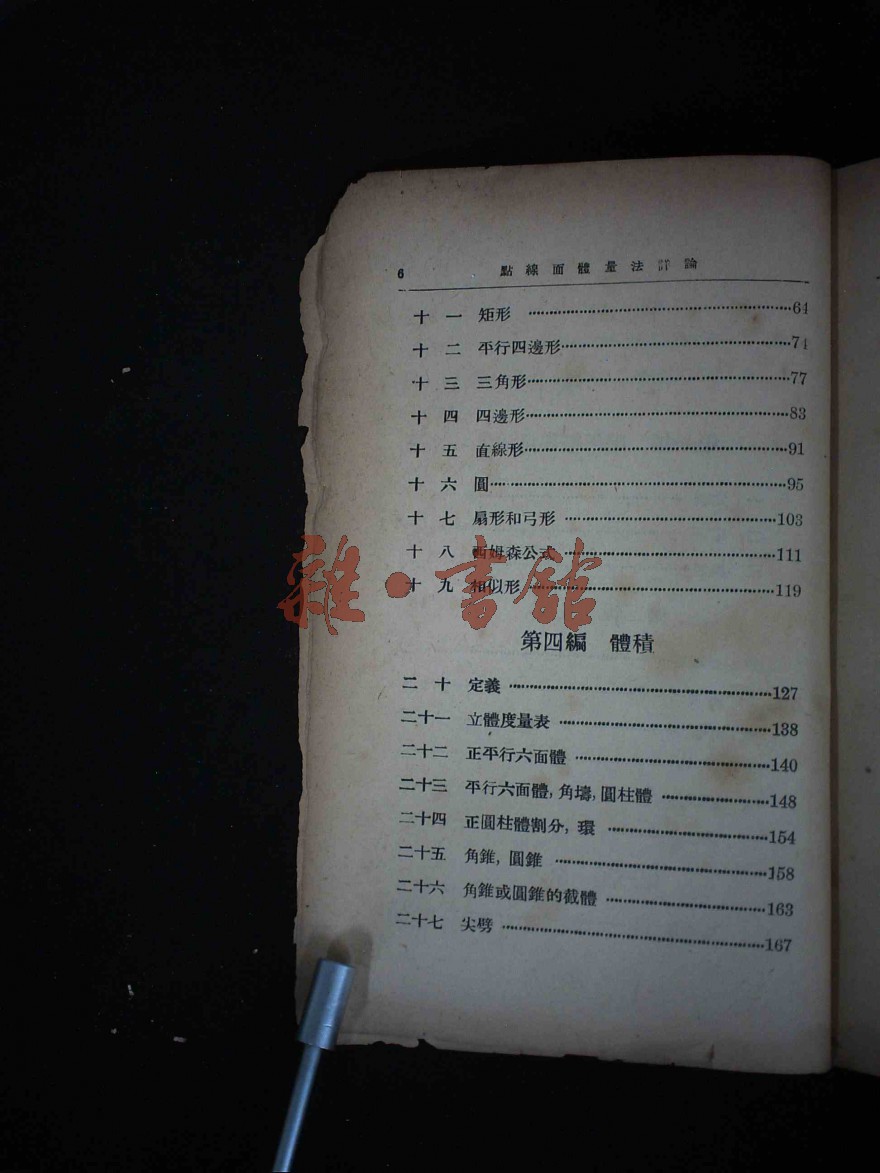 6 點線面體量法詳論
十一 矩形 ……64
十二 平行四邊形……74
十三 三角形……77
十四 四邊形……83
十五 直線形……91
十六 圓……95
十七 扇形和弓形……103
十八 西姆森公式……111
十九 相似形……119
雜·書館
第四編 體積
二十 定義……127
二十一 立體度量表……138
二十二 正平行六面體……140
二十三 平行六面體,角壔,圓柱體……148
二十四 正圓柱體割分,環……154
二十五 角錐,圓錐……158
二十六 角錐或圓錐的截體……163
二十七 尖劈……167